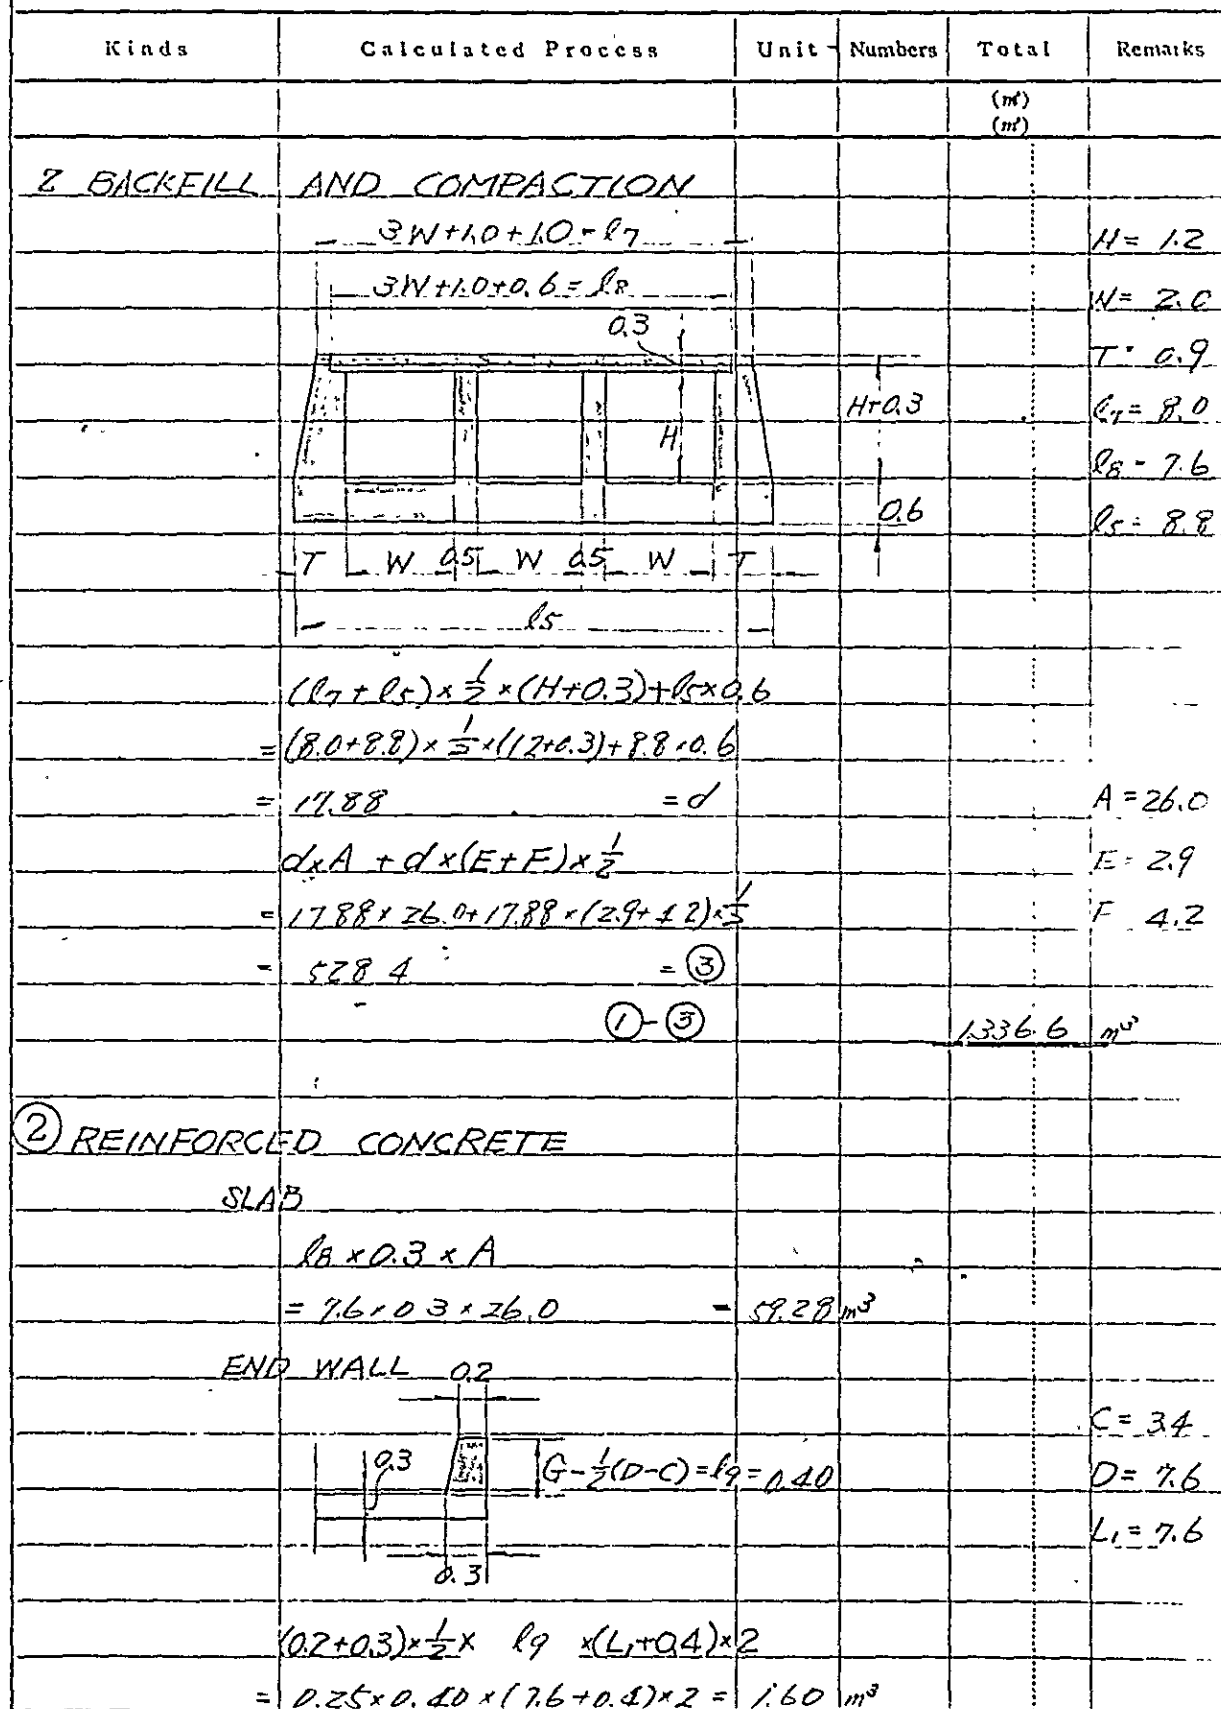 Kinds Calculated Process Unit Numbers Total Remarks
(m²)
(m³)
2 BACKFILL AND COMPACTION
3W+1.0+1.0=ℓ7
H= 1.2
3W+1.0+0.6=ℓ8
W= 2.0
0.3
T= 0.9
H+0.3
ℓ7= 8.0
H
ℓ8= 7.6
0.6
ℓ5= 8.8
T W 0.5 W 0.5 W T
ℓ5
(ℓ7+ℓ5)×1/2×(H+0.3)+ℓ5×0.6
=(8.0+8.8)×1/2×(1.2+0.3)+8.8×0.6
= 17.88 =d A=26.0
d×A+d×(E+F)×1/2 E= 2.9
= 17.88×26.0+17.88×(2.9+4.2)×1/2 F 4.2
= 528.4 = ③
①-③ 1.336.6 m³
② REINFORCED CONCRETE
SLAB
ℓ8×0.3×A
= 7.6×0.3×26.0 = 59.28 m³
END WALL 0.2
C= 3.4
0.3 G-1/2(D-C)=ℓ9=0.40 D= 7.6
L1= 7.6
0.3
(0.2+0.3)×1/2× ℓ9 ×(L1+0.4)×2
= 0.25×0.40×(7.6+0.4)×2= 1.60 m³